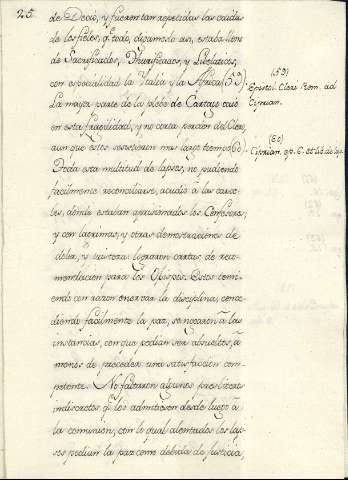 25.
de Decio, y fueron tan repetidas las caidas
de los fieles, qe todo, digamoslo asi, estaba lleno
de Sacrificados, Thurificados, y Libelaticos,
con especialidad la Italia y la Africa (59)
La mayor parte de la plebe de Cartago cayó
en esta fragilidad, y no corta porcion del Clero,
aunque estos resistieron mas largo tiempo (60).
Toda esta multitud de lapsos, no pudiendo
facilmente reconciliarse, acudió à las carce-
les, dónde estavan aprisionados los Confesores,
y con lagrimas, y otras demostraciones de
dolor, y tristeza lograron cartas de reco-
mendacion para los Obispos. Estos temi-
endo con razon enervar la disciplina, conce-
diendo facilmente la paz, se negaron à las
instancias, con que pedian ser absueltos, à
menos de preceder una satisfaccion com-
petente. No faltaron algunos presbiteros
indiscretos qe los admitieron desde luego à
la comunion, con lo qual alentados los lap-
sos pedian la paz como debida de justicia,
(59)
Epistol. Cleri Rom. ad
Ciprian.
(60)
Ciprian. ep. 6. et lib. de laps.